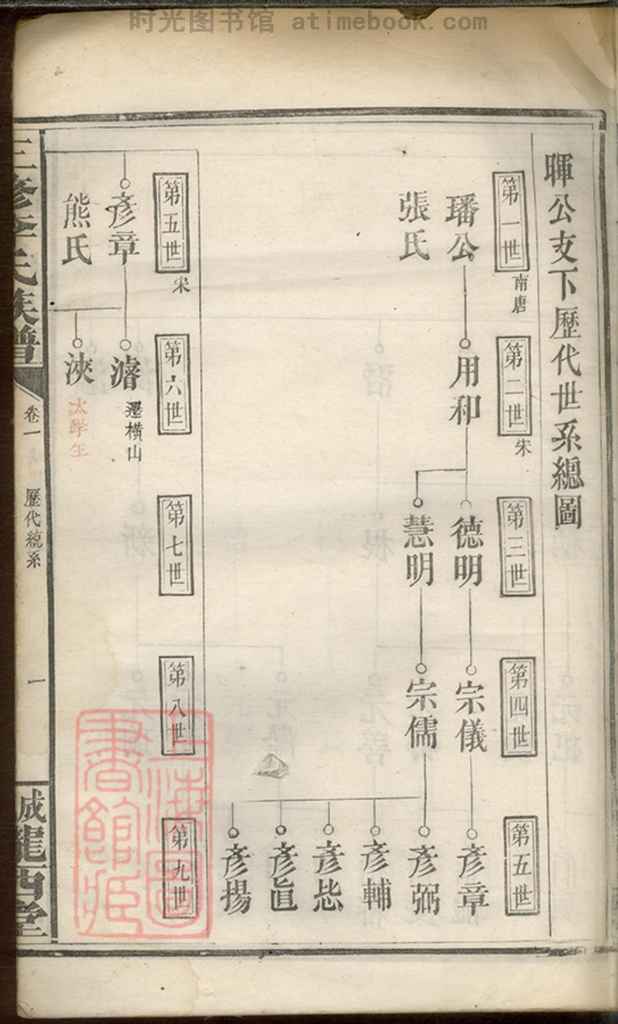 时光图书馆 atimebook.com
暉公支下歷代世系總圖
第一世
南唐
璠公
張氏
第二世
宋
用和
第三世
德明
慧明
第四世
宗儀
宗儒
第五世
彥章
彥弼
彥輔
彥
彥眞
彥揚
第五世
宋
彥章
熊氏
第六世
濬
遷橫山
浹
太學生
第七世
第八世
第九世
三修李氏族譜
卷一
歷代統系
一
誠龍西堂
上海圖書館